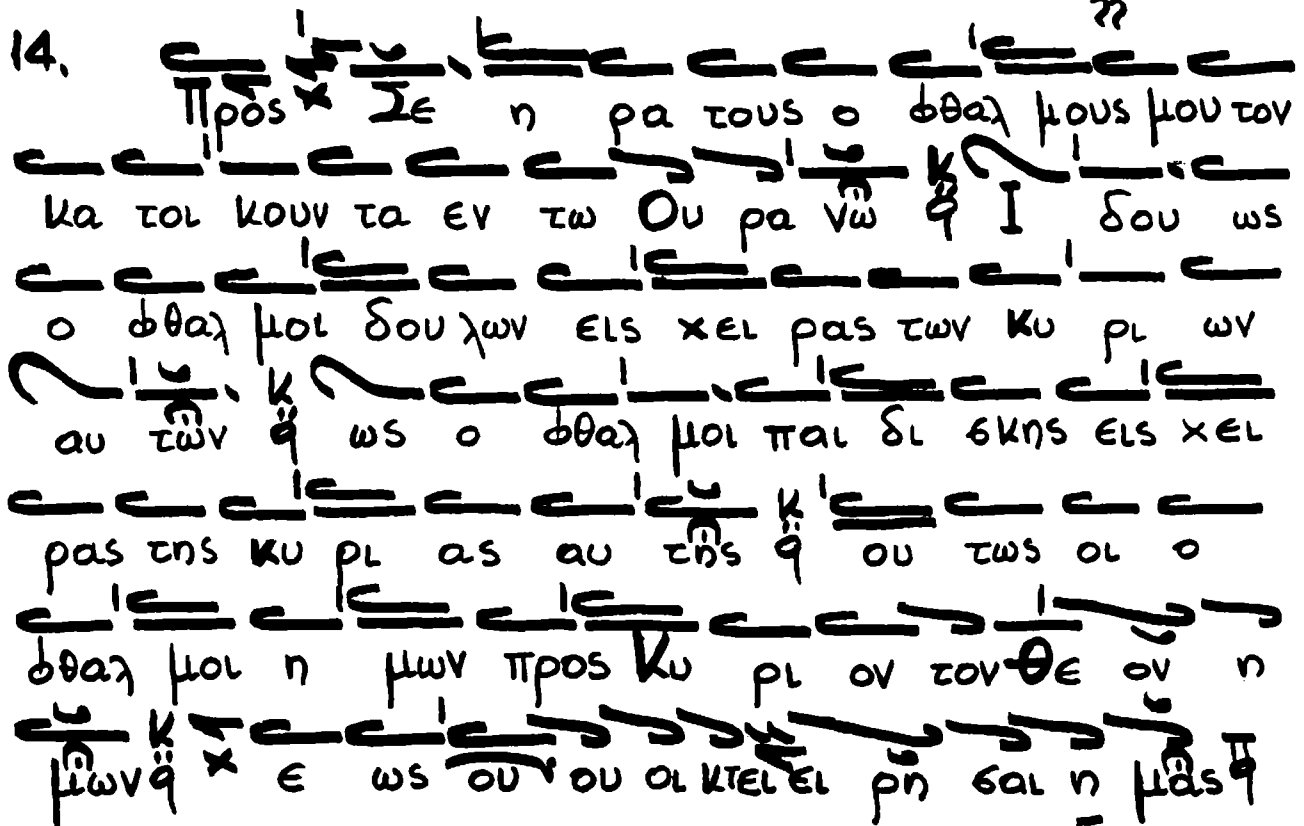 14. Προς Σε η ρα τους ο φθαλ μους μου τον
κα τοι κουν τα εν τω Ου ρα νω Ι δου ως
ο φθαλ μοι δου λων εις χει ρας των Κυ ρι ων
αυ των ως ο φθαλ μοι παι δι σκης εις χει
ρας της κυ ρι ας αυ της ου τως οι ο
φθαλ μοι η μων προς Κυ ρι ον τον Θε ον η
μων ε ως ου ου οι κτει ει ρη σαι η μας